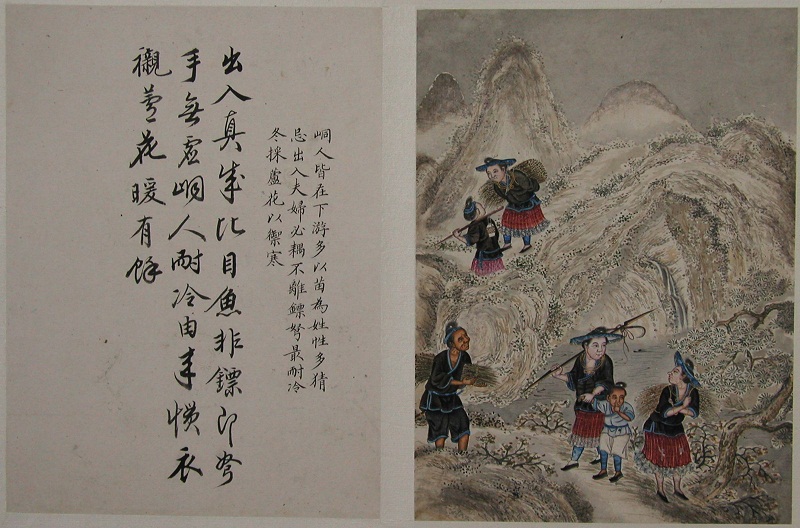 峒人皆在下游多以苗為姓性多猜
忌出入夫婦必耦不離鏢弩最耐冷
冬採蘆花以禦寒
出入真成比目魚非鏢即弩
手無虛峒人耐冷由來慣衣
襯蘆花暖有餘